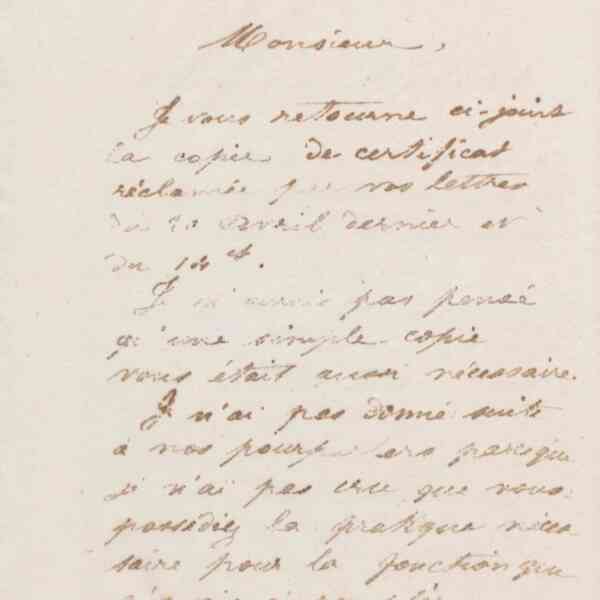 Monsieur,
Je vous retourne ci-joint
la copie de certificat
réclamée par vos lettres
du 20 avril dernier et
du 14 ct.
Je n'avais pas pensé
qu'une simple copie
vous était aussi nécessaire.
Je n'ai pas donné suite
à nos pourparlers parceque
je n'ai pas cru que vous
possédiez la pratique néces
saire pour la fonction que